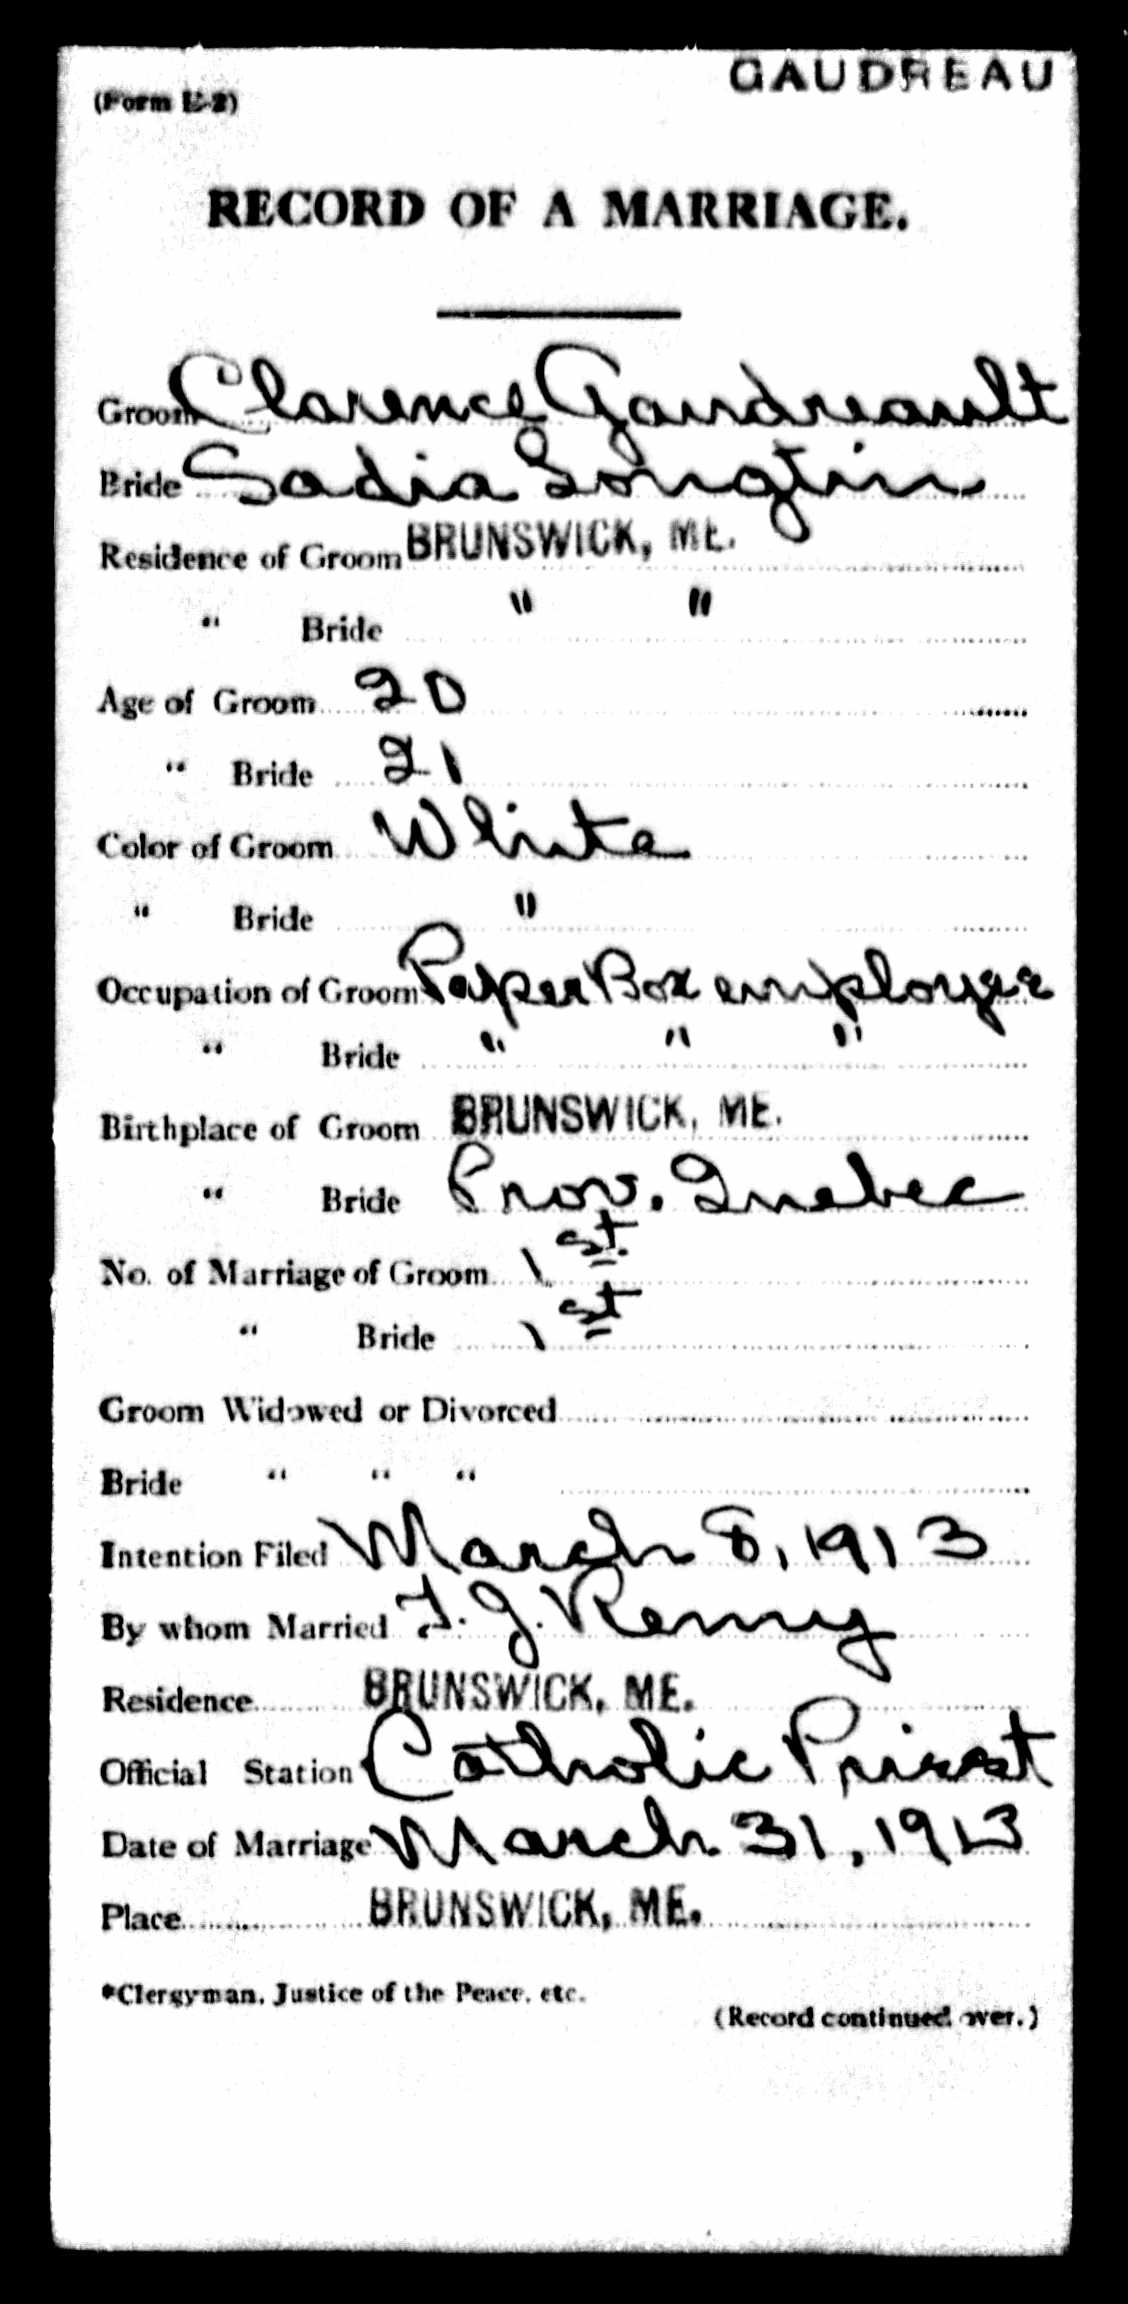 GAUDREAU
(Form E-2)
RECORD OF A MARRIAGE.
Groom Clarence Gaudreault
Bride Sadia Longtin
Residence of Groom BRUNSWICK, ME.
" Bride " "
Age of Groom 20
" Bride 21
Color of Groom White
" Bride "
Occupation of Groom Paper Box employee
" Bride " " "
Birthplace of Groom BRUNSWICK, ME.
" Bride Prov. Quebec
No. of Marriage of Groom 1st.
" Bride 1st
Groom Widowed or Divorced
Bride " " "
Intention Filed March 8, 1913
By whom Married T. J. Remy
Residence BRUNSWICK, ME.
Official Station Catholic Priest
Date of Marriage March 31, 1913
Place BRUNSWICK, ME.
*Clergyman, Justice of the Peace, etc.
(Record continued over.)